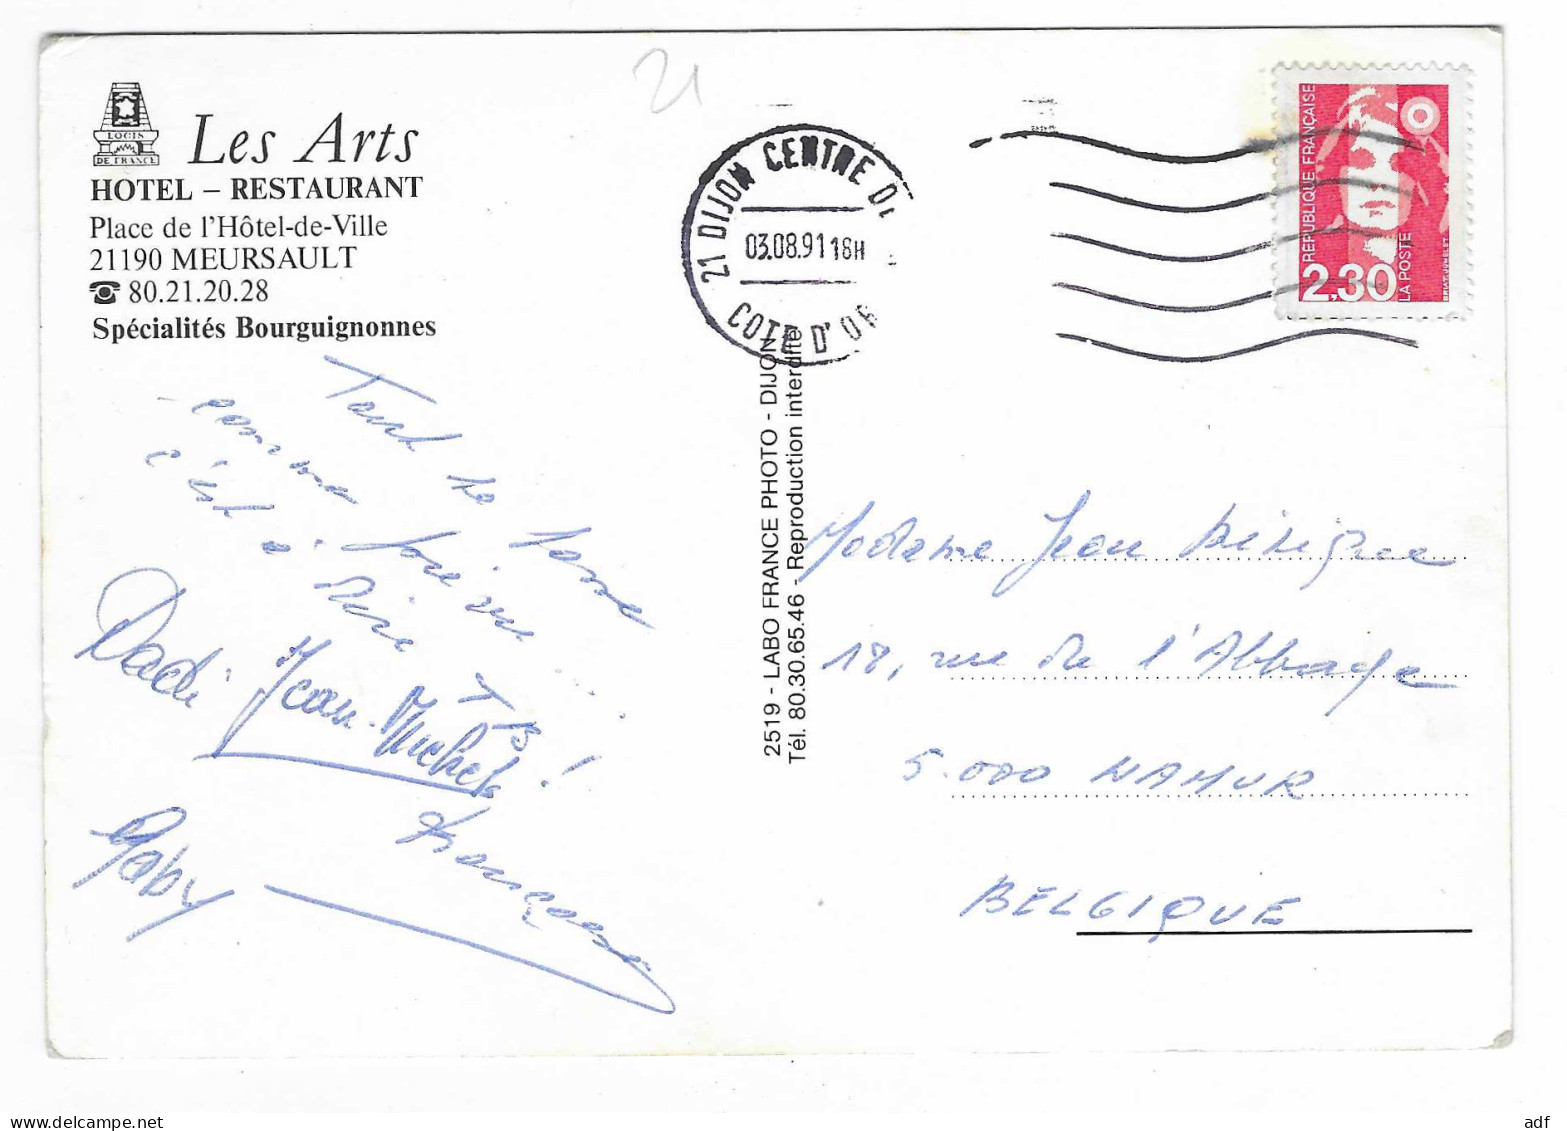 21
LOGIS
DE FRANCE
Les Arts
HOTEL – RESTAURANT
Place de l'Hôtel-de-Ville
21190 MEURSAULT
☎ 80.21.20.28
Spécialités Bourguignonnes
21 DIJON CENTRE
03.08.91 18H
COTE D'OR
REPUBLIQUE FRANÇAISE
2,30
LA POSTE
BRIAT-JUMELET
Tout se passe
comme prévu ....
c'est à dire TB!
Dadi
Jean-Michel
Gaby
Françoise
2519 - LABO FRANCE PHOTO - DIJON
Tél. 80.30.65.46 - Reproduction interdite
Madame Jean
18, rue de l'Abbaye
5.000 NAMUR
BELGIQUE
adf